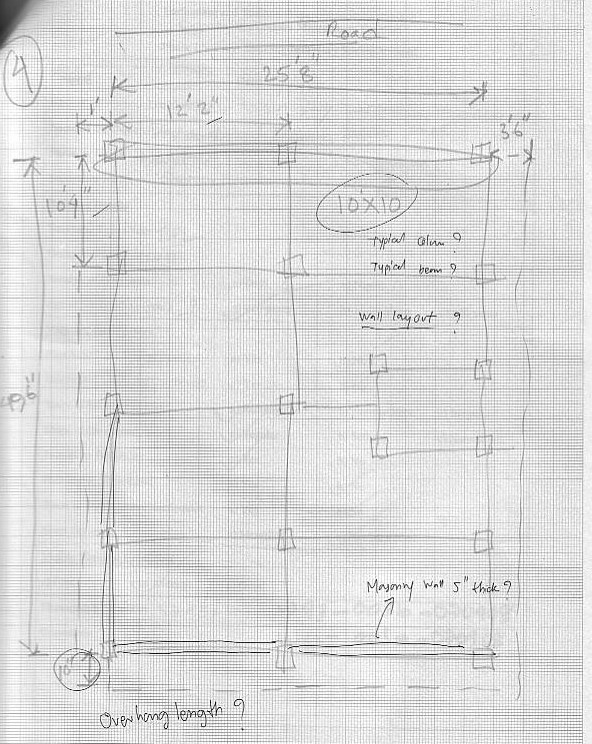 Road
4
25'8"
1'
12'2"
3'6"
10'4"
10X10
Typical Colum ?
Typical beam ?
Wall layout ?
49'6"
Masonry Wall 5" thick ?
10"
Overhang length ?